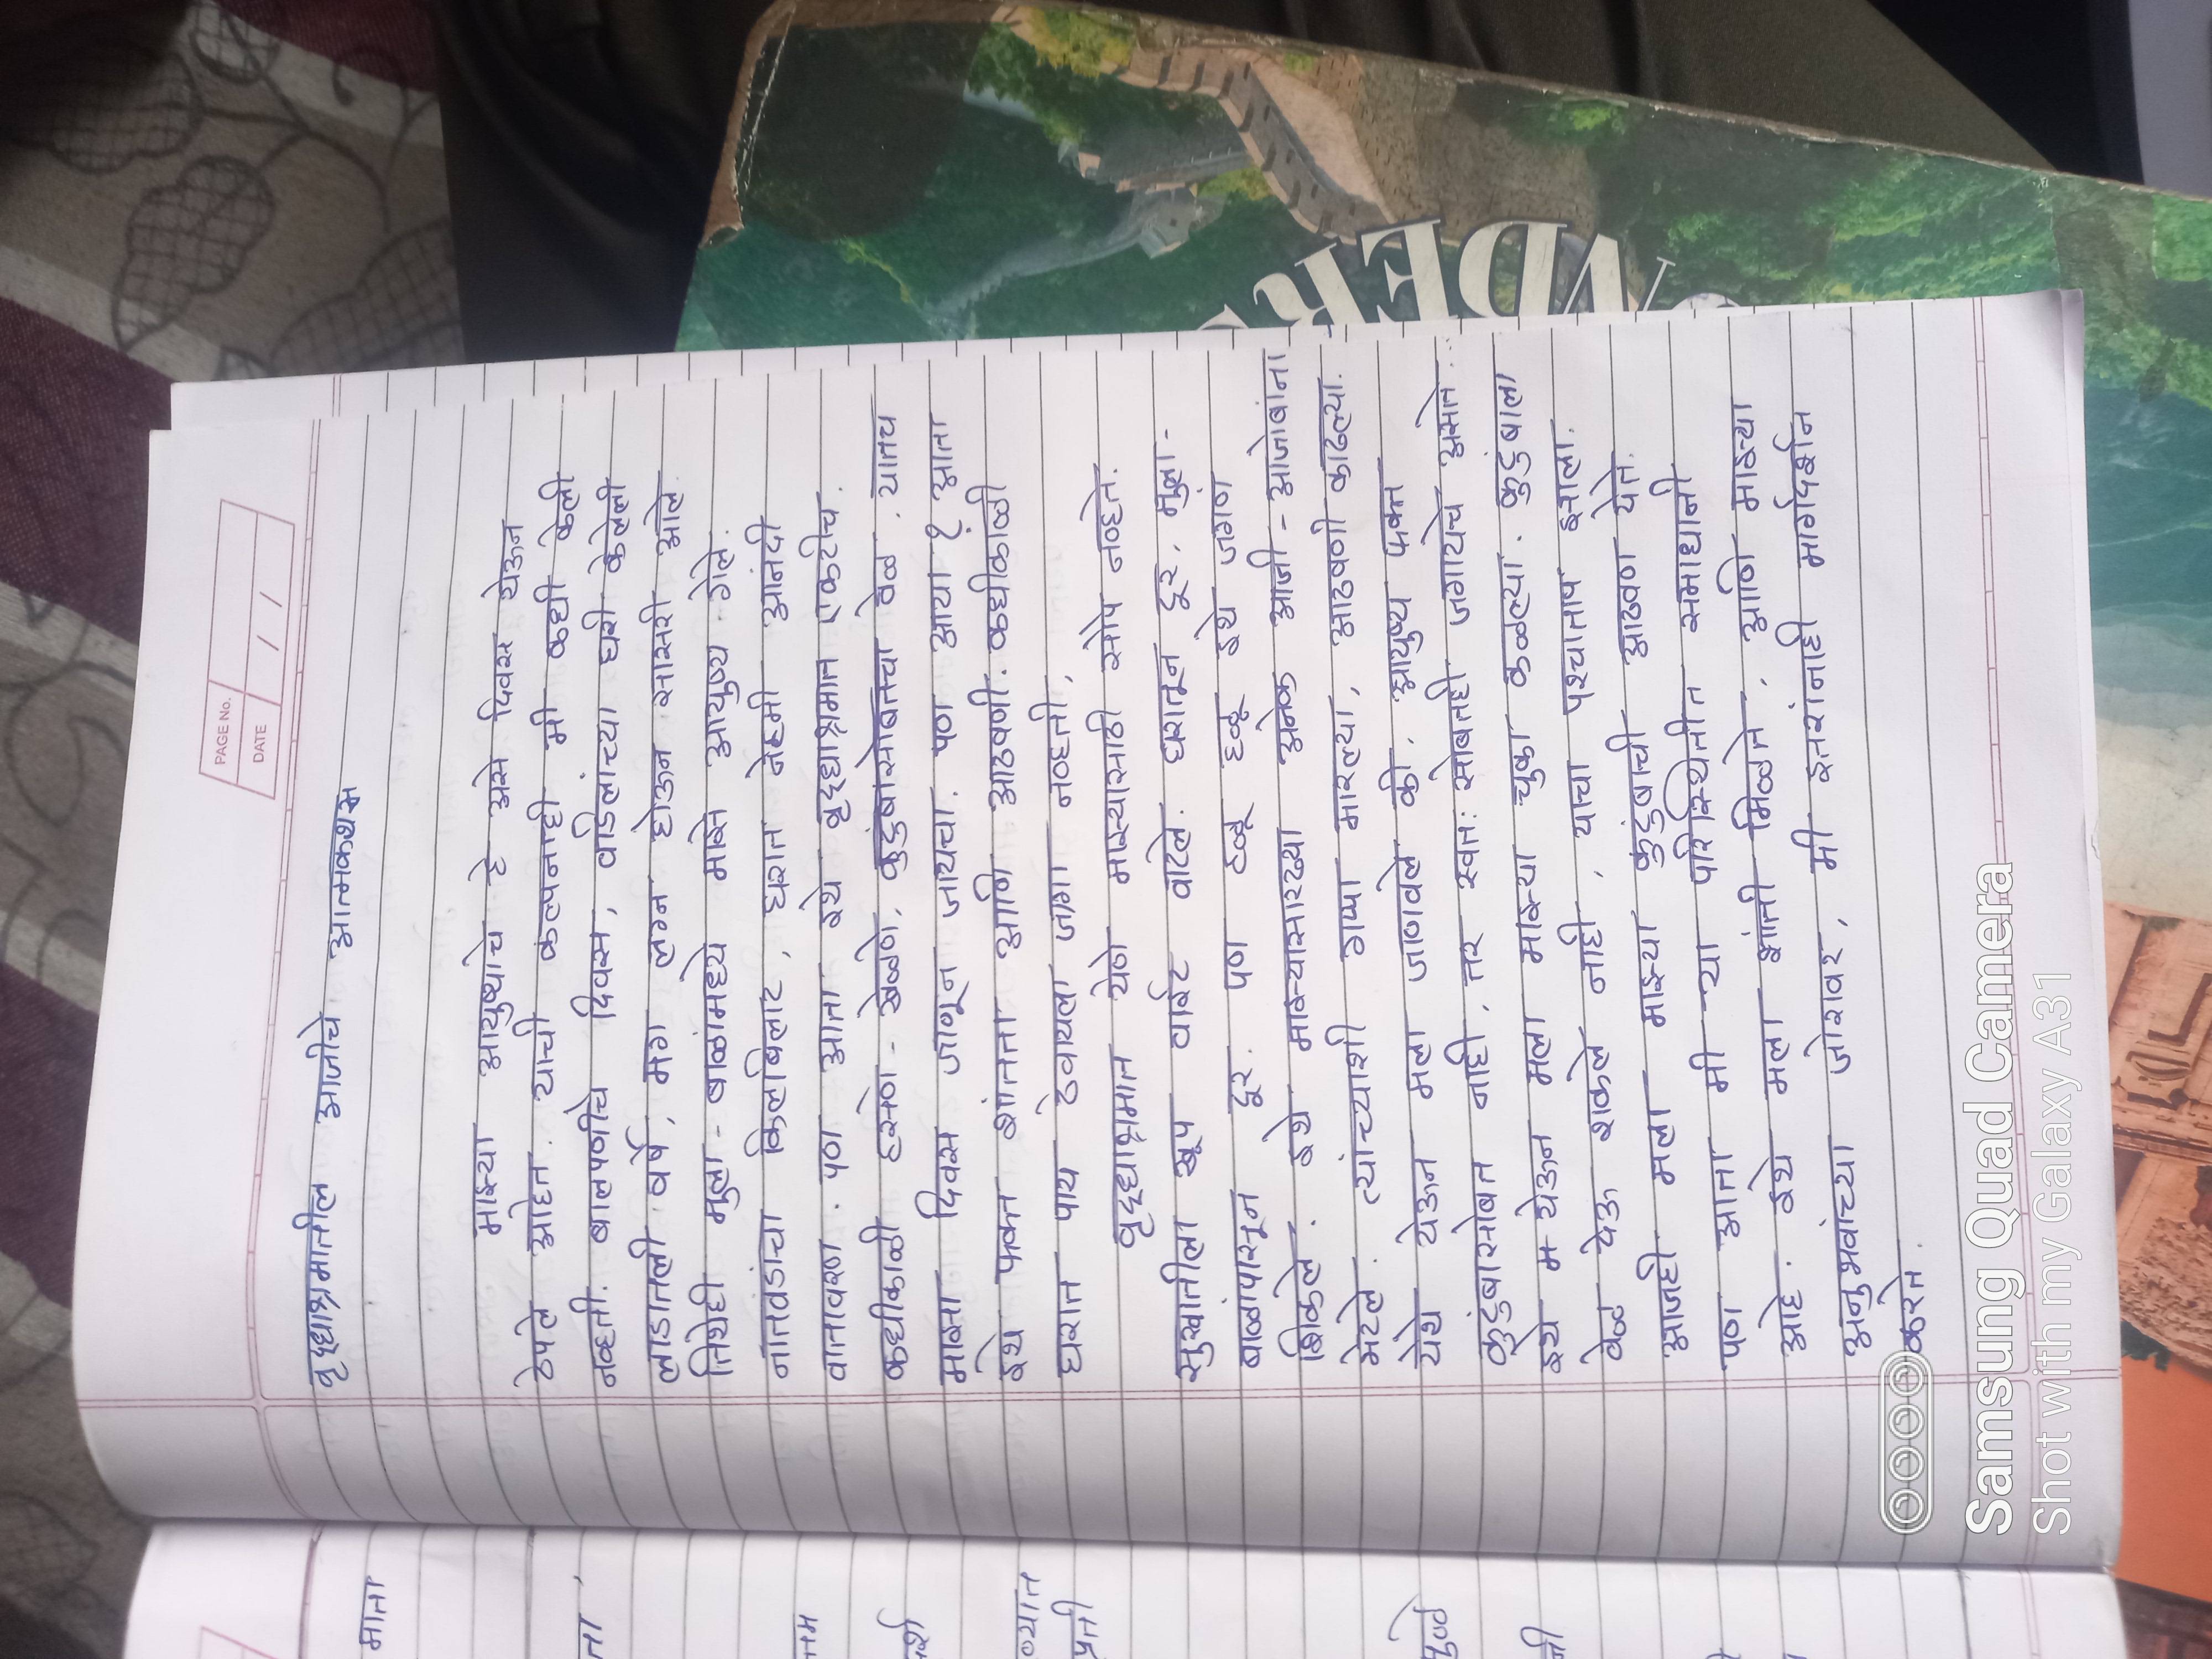 PAGE No.
DATE / /
वृध्धाश्रमातील आजीचे आत्मकथन
माझ्या आयुष्याचे हे असे दिवस येऊन
ठेपले आहेत. याची कल्पनाही मी कधी केली
नव्हती. बालपणीचे दिवस, वडिलांच्या घरी केलेली
लाडातली वर्षे, मग लग्न होऊन सासरी आले.
तिथेही मुला - बाळांमध्ये माझे आयुष्य गेले.
नातवंडांचा किलबिलाट, घरात नेहमी आनंदी
वातावरण. पण आता इथे वृद्धाश्रमात एकटीच.
कधीकाळी हसणे - खेळणे, कुटुंबासोबतचा वेळ, यातच
माझा दिवस जाणून जायचा. पण आया ? आता
इथे फक्त शांतता आणि आठवणी. कधीकाळी
घरात पाय ठेवायला जागा नव्हती,
वृद्धाश्रमात येणे माझ्यासाठी सोपे नव्हते.
सुरुवातीला खूप वाईट वाटले. घरातून दूर, मुला-
बाळांपासून दूर. पण हळू हळू इथे जगणे
शिकले. इथे माझ्यासारख्या अनेक आजी - आजोबांना
भेटले. त्यांच्याशी गप्पा मारल्या, आठवणी काढल्या.
येथे येऊन मला जाणवले की, आयुष्य फक्त
कुटुंबासोबत नाही, तर स्वतः सोबतही जगायचे असते.
इथे म येऊन मला माझ्या चुका कळल्या. कुटुंबाला
वेळ येऊ शकले नाही, याचा पश्चाताप झाला.
आजही मला माझ्या कुटुंबाची आठवण येते.
पण आता मी या परिस्थितीत समाधानी
आहे. इथे मला शांती मिळते, आणि माझ्या
अनुभवांच्या जोरावर, मी इतरांनाही मार्गदर्शन
करते.
माता
ता
तम
र्श
ण्यात
प्रती
पुळे
नी
NDER
Samsung Quad Camera
Shot with my Galaxy A31